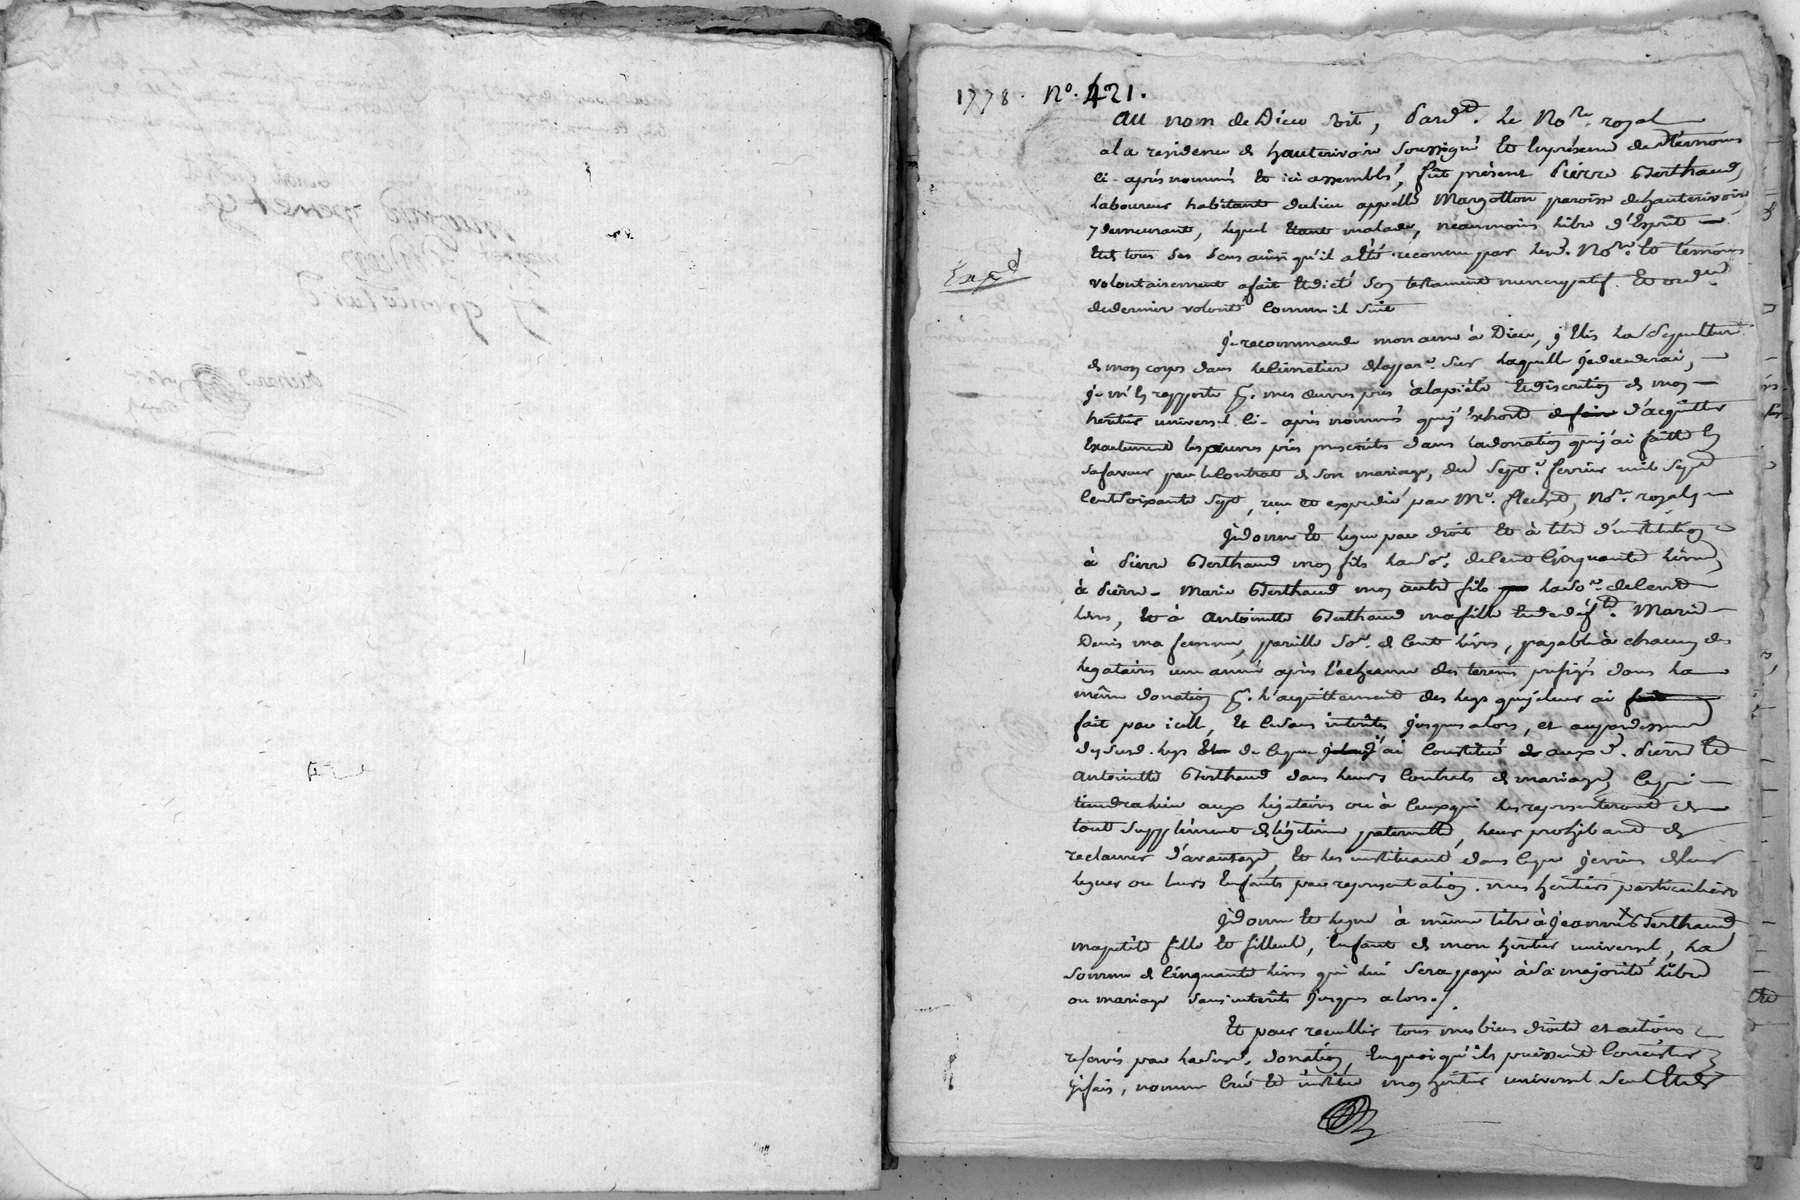 1778. No. 421.
Au nom de Dieu soit, Pard.t Le No.re royal
a la residence de hauterivoire soussigné Et En présence des Témoins
ci-après nommés Et ici assemblés, fut présent Pierre Berthaud,
Laboureur habitant du lieu appellé Margotton paroisse de hauterivoire
y demeurant, lequel Etant malade, néanmoins Libre d'Esprit
Et de tous ses sens ainsi qu'il a Eté reconnu par Led. No.re Et témoins
volontairement a fait Et dicté son testament nuncupatif Et ord.ce
de derniere volonté comme il suit
Exp.d
Je recommande mon ame à Dieu, j'Elis La Sepulture
de mon corps dans Le cimetiere de la par.se sur Laquelle je decederai,
je m'En rapporte p.r mes œuvres pies à la pieté Et discretion de mon
héritier universel ci-après nommé que j'Exhorte de faire d'acquitter
Exactement Les œuvres pies prescrites dans la donation que j'ai faitte En
sa faveur par le Contrat de son mariage, du Sept.e fevrier mil Sept
Cent Soixante Sept, reçu et expedié par M.e flechet, No.re royal
Je donne Et Legue par droit Et à titre d'institution
à Pierre Berthaud mon fils La so.e de Cent Cinquante Livres
à Pierre-Marie Berthaud mon autre fils La so.e de Cent
Livres, Et à Antoinette Berthaud ma fille Et de def.te Marie
Denis ma femme, pareille so.e de Cent Livres, payable à chacun des
Legataires une année après L'echeance des termes prefigés dans La
même donation p.r L'acquittement des Legs que je leur ai
fait par icelle, Et ce sans intérêts jusques alors, et au par dessus
desusd. Legs de ce que j'ai Constitué aux d. Pierre Et
Antoinette Berthaud dans Leurs Contrats de mariage, Ce qui
tiendra Lieu aux Légataires ou à Ceux qui Les representeront de
tout Supplément de Légitime paternelle, Leur prohibant de
reclamer d'avantage, Et Les instituant dans Ce que je viens de Leur
Leguer ou Leurs Enfants par representation mes héritiers particuliers
Je donne Et Legue à même titre à Jeanne Berthaud
ma petite fille Et filleule, Enfant de mon héritier universel, La
Somme de Cinquante Livres qui Lui Sera payé à Sa majorité Libre
ou mariage Sans intérêts jusques alors./.
Et pour recueillir tous mes biens droits et actions
reservés par La susd. donation, En quoi qu'ils puissent Consister
je fais, nomme Créé Et institue mon héritier universel Seul Et de